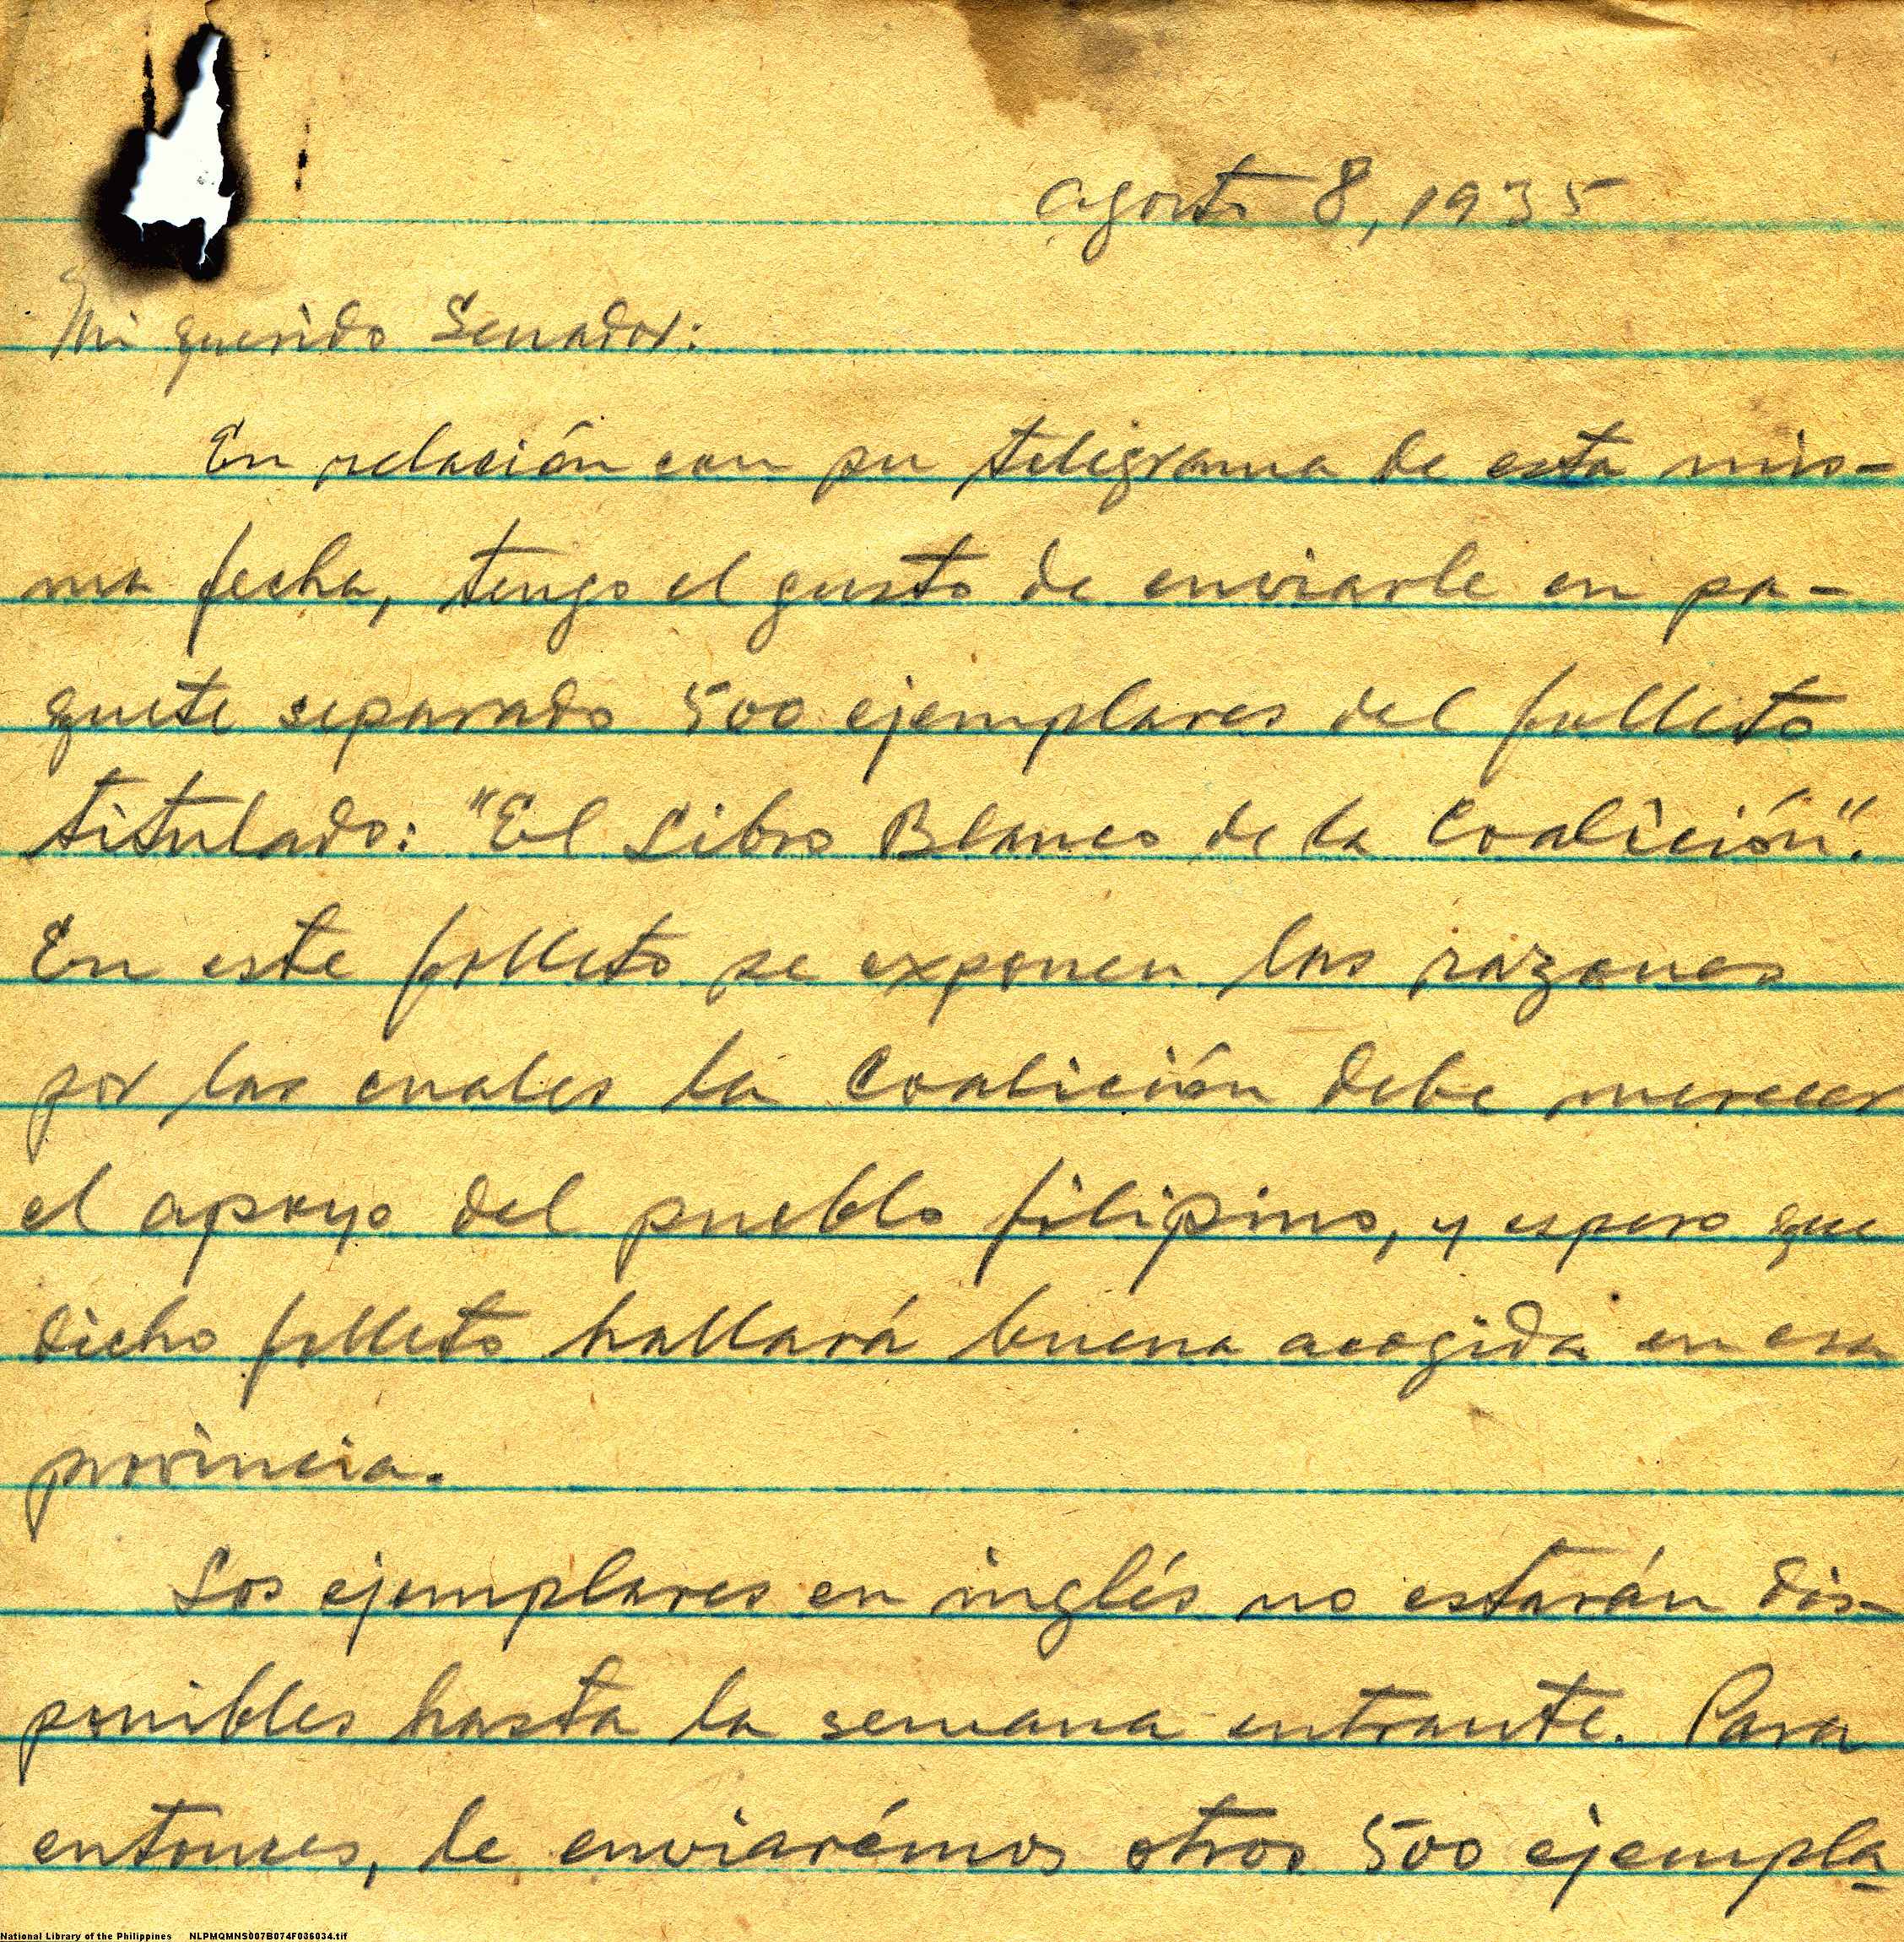 agosto 8, 1935
Mi querido Senador:
En relación con su telegrama de esta mis-
ma fecha, tengo el gusto de enviarle en pa-
quete separado 500 ejemplares del folleto
titulado: "El Libro Blanco de la Coalición".
En este folleto se exponen las razones
por las cuales la Coalición debe merecer
el apoyo del pueblo filipino, y espero que
dicho folleto hallará buena acogida en esa
provincia.
Los ejemplares en inglés no estarán dis-
ponibles hasta la semana entrante. Para
entonces, le enviarémos otros 500 ejempla-
National Library of the Philippines NLPMQMNS007B074F036034.tif